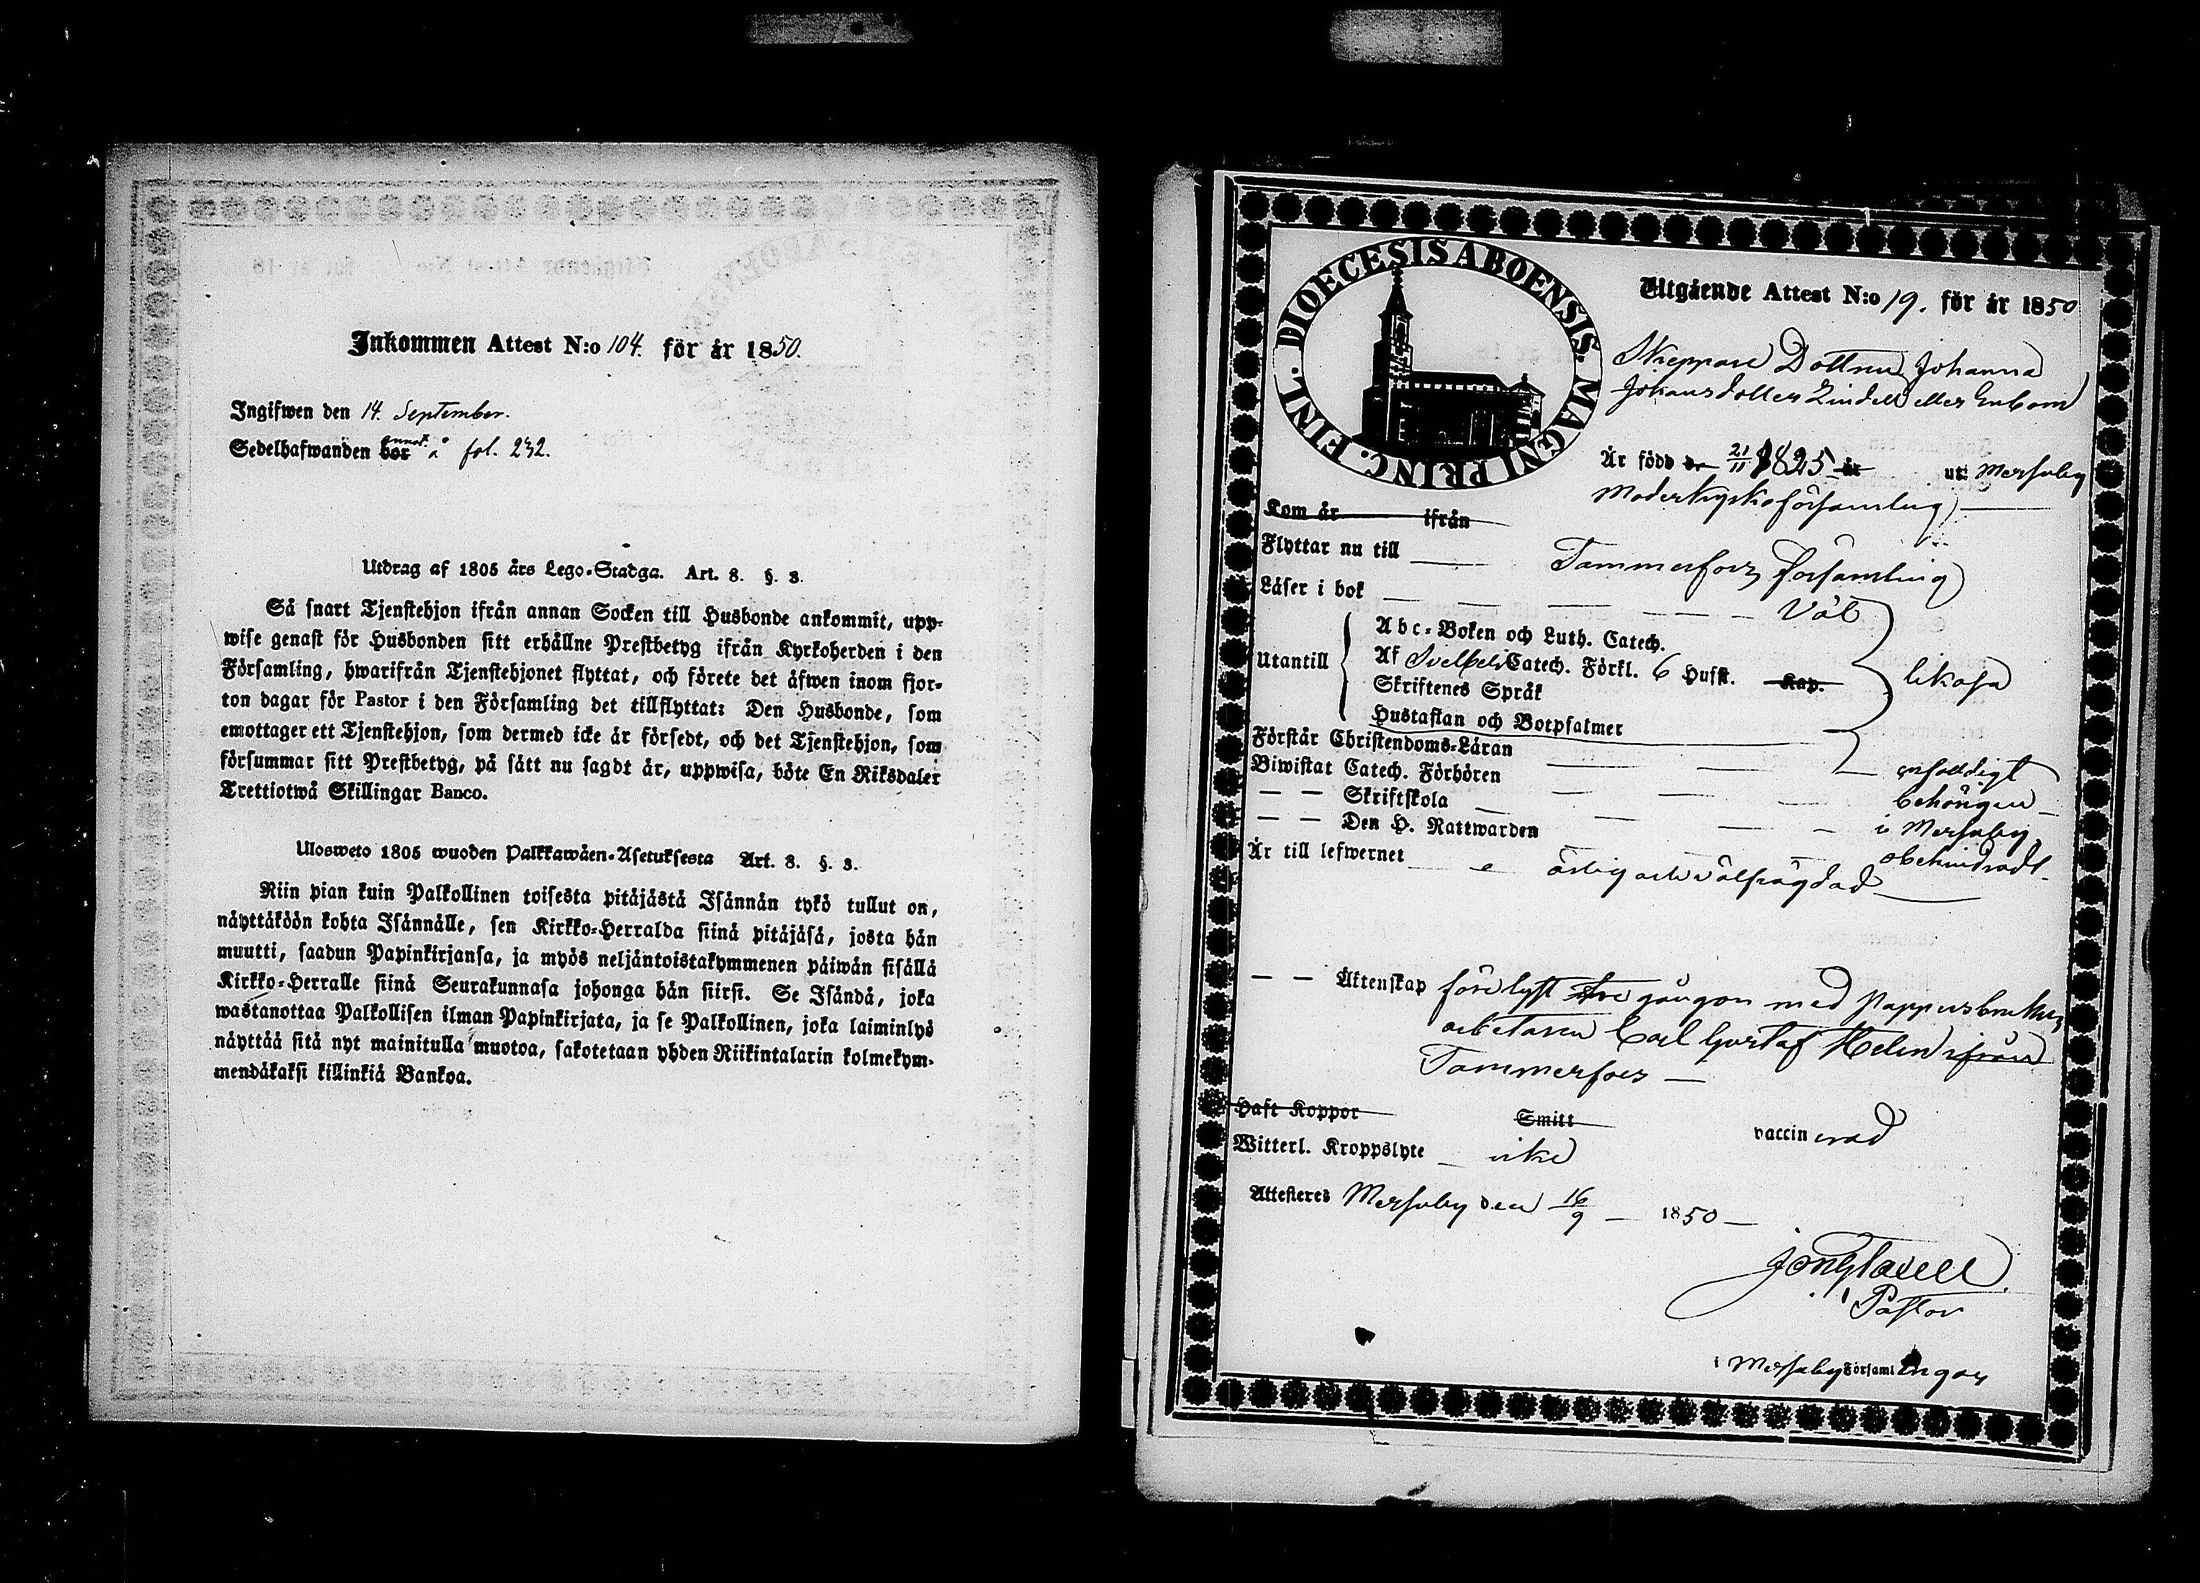 Inkommen Attest N:o 104. för år 1850.
Ingifwen den 14. September.
Sedelhafwanden bör annot. å fol. 232.
Utdrag af 1805 års Lego-Stadga. Art. 8. §. 3.
Så snart Tjenstehjon ifrån annan Socken till Husbonde ankommit, upp-
wise genast för Husbonden sitt erhållne Prestbetyg ifrån Kyrkoherden i den
Församling, hwarifrån Tjenstehjonet flyttat, och förete det äfwen inom fjor-
ton dagar för Pastor i den Församling det tillflyttat: Den Husbonde, som
emottager ett Tjenstehjon, som dermed icke är försedt, och det Tjenstehjon, som
försummar sitt Prestbetyg, på sätt nu sagdt är, uppwisa, böte En Riksdaler
Trettiotwå Skillingar Banco.
Ulosweto 1805 wuoden Palkkawäen-Asetuksesta Art. 8. §. 3.
Niin pian kuin Palkollinen toisesta pitäjästä Isännän tykö tullut on,
näyttäköön kohta Isännälle, sen Kirkko-Herralda siinä pitäjäsä, josta hän
muutti, saadun Papinkirjansa, ja myös neljäntoistakymmenen päiwän sisällä
Kirkko-Herralle siinä Seurakunnasa johonga hän siirsi. Se Isändä, joka
wastanottaa Palkollisen ilman Papinkirjata, ja se Palkollinen, joka laiminlyö
näyttää sitä nyt mainitulla muotoa, sakotetaan yhden Riikintalarin kolmekym-
mendäkaksi killinkiä Bankoa.
DIOECESIS ABOENSIS. MAGNI PRINC. FINL.
Utgående Attest N:o 19. för år 1850
Skeppare Dottren Johanna
Johansdotter Lindell eller Enbom
Är född d. 21/11 1825 år uti Mersuby
Moderkyrko församling
Kom år ifrån
Flyttar nu till Tammerfors församling
Läser i bok Väl
Abc-Boken och Luth. Catech.
Utantill Af Svelbeli Catech. Förkl. 6 Husst. Kap. likaså
Skriftenes Språk
Hustaflan och Botpsalmer
Förstår Christendoms-Läran enfaldigt
Biwistat Catech. Förhören behörigen
Skriftskola i Mersuby
Den H. Nattwarden obehindradt
Är till lefwernet ärlig och välfrägdad
Äktenskap före lyst tre gångor med Pappersbruks
arbetaren Carl Gustaf Helen ifrån
Tammerfors
Haft Koppor Smitt vaccinerad
Witterl. Kroppslyte icke
Attesteres Mersuby den 16/9 1850
Pastor
i Mersuby Församlingar